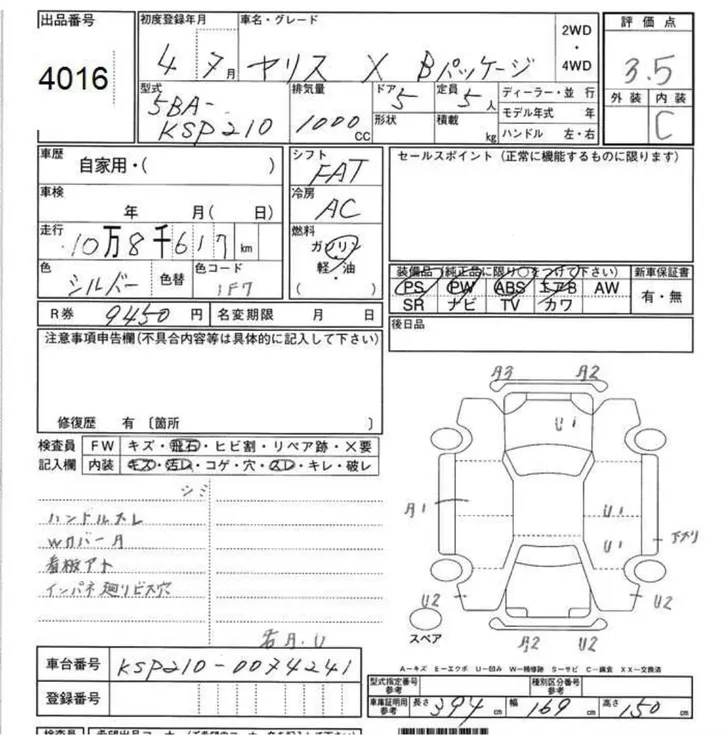 出品番号
4016
初度登録年月
4 7月
車名・グレード
ヤリス X Bパッケージ
2WD
・
4WD
評価点
3.5
外装 内装
C
型式
5BA-
KSP210
排気量
1000 CC
ドア 5
形状
定員 5 人
積載 kg
ディーラー・並 行
モデル年式 年
ハンドル 左・右
車歴
自家用・( )
車検
年 月( 日)
走行
10万8千617 km
色
シルバー
色替
色コード
1F7
シフト
FAT
冷房
AC
燃料
ガソリン
軽・油
( ・ )
セールスポイント (正常に機能するものに限ります)
装備品 (純正品に限り○をつけて下さい)
PS PW ABS エアB AW
SR ナビ TV カワ
新車保証書
有・無
R券 9450 円
名変期限 月 日
後日品
注意事項申告欄(不具合内容等は具体的に記入して下さい)
修復歴 有 〔箇所 〕
検査員
記入欄
FW キズ・飛石・ヒビ割・リペア跡・X要
内装 キズ・汚レ・コゲ・穴・スレ・キレ・破レ
シミ
ハンドルスレ
Wカバー A
看板アト
インパネ廻りビス穴
若A.U
A3 A2
U1
A1
U1
U1
下スリ
U2 U2
A2 U2
スペア
A-キズ E-エクボ U-凹み W-補修跡 S-サビ C-腐食 XX-交換済
車台番号
KSP210-0074241
登録番号
型式指定番号
参考
種別区分番号
参考
車庫証明用
参考
長さ 394 cm
幅 169 cm
高さ 150 cm